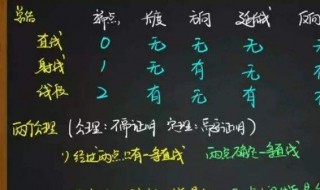 端点 长度 方向 延长线 反向
直线 0 无 无 无
射线 1 无 有 无
线段 2 有 无 有
两个公理 (公理:不需证明 定理:需要证明)
1) 经过两点只有一条直线 两点确定一条直线